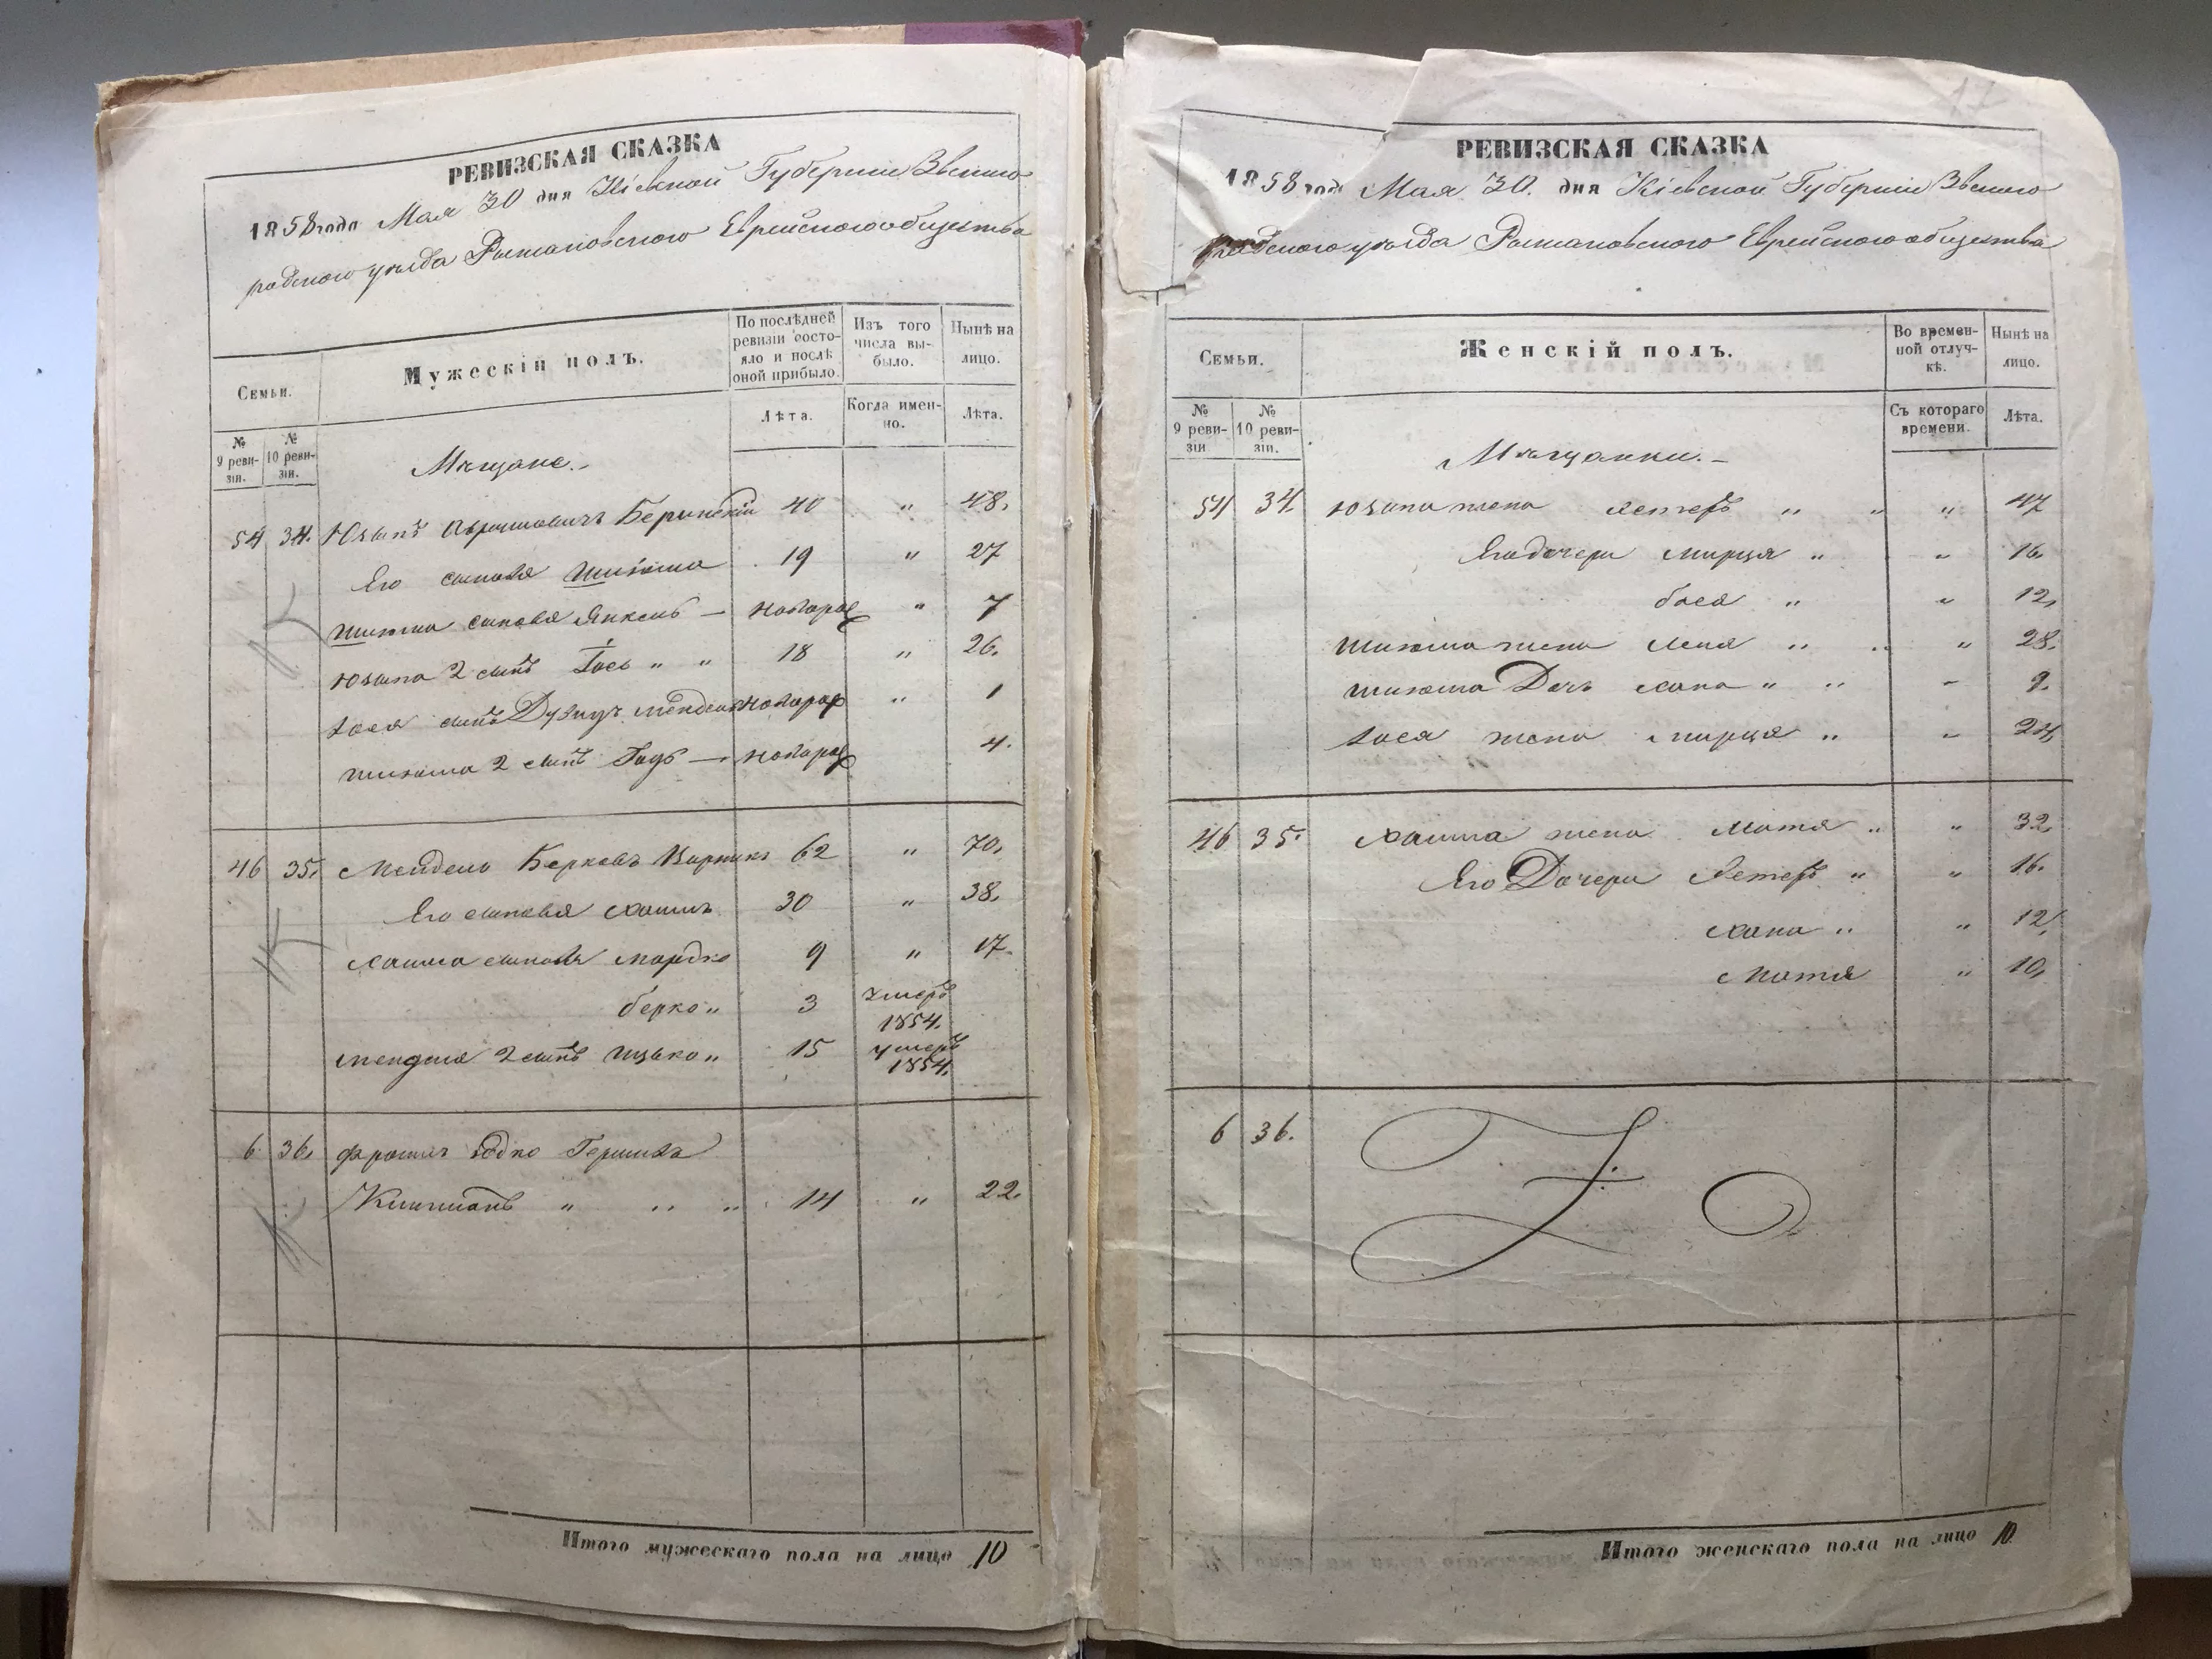 РЕВИЗСКАЯ СКАЗКА
1858 года Мая 30 дня Кіевской Губерніи Звениго
родского уѣзда Рыжановского Еврейского общества
Семьи.
Мужескій полъ.
По послѣдней ревизіи состо-яло и послѣ оной прибыло.
Изъ того числа вы-было.
Нынѣ на лицо.
№ 9 реви-зіи.
№ 10 реви-зіи.
Лѣта.
Когда имен-но.
Лѣта.
Мѣщане.
54 34. Юзипъ Абрамовичъ Беринскій 40 " 48.
Его сыновья Шлiома 19 " 27
Шлiома сыновья Янкель — новорож " 7
Юзипа 2 сынъ Іось " " 18 " 26.
Іося сынъ Дувидъ Мендель новорож " 1
Шлiома 2 сынъ Гадь — новорож 4.
46 35. Мендель Берковъ 62 " 70.
Его сыновья Хаимъ 30 " 38.
Хаима сыновья Мордко 9 " 17.
Берко " 3 умеръ 1854.
Менделя 2 сынъ Ицько " 15 умеръ 1854.
6 36. Фроимъ Іодко Гершковъ
" " " 14 " 22.
Итого мужескаго пола на лицо 10
17
РЕВИЗСКАЯ СКАЗКА
1858 года Мая 30. дня Кіевской Губерніи Звениго
родского уѣзда Рыжановского Еврейского общества
Семьи.
Женскій полъ.
Во времен-ной отлуч-кѣ.
Нынѣ на лицо.
№ 9 реви-зіи
№ 10 реви-зіи.
Съ котораго времени.
Лѣта.
Мѣщанки.
54 34. Юзипа жена Естеръ " " " 47
Его дочери Мирця " " 16.
Бася " " 12.
Шлiома жена Леня " " " 28.
Шлiома Дочь Хана " " " 9.
Іося жена Мирця " " 24.
46 35. Хаима жена Мотя " " 32.
Его Дочери Естеръ " " 16.
Хана " " 12.
Мотя " 10.
6 36.
Итого женскаго пола на лицо 10